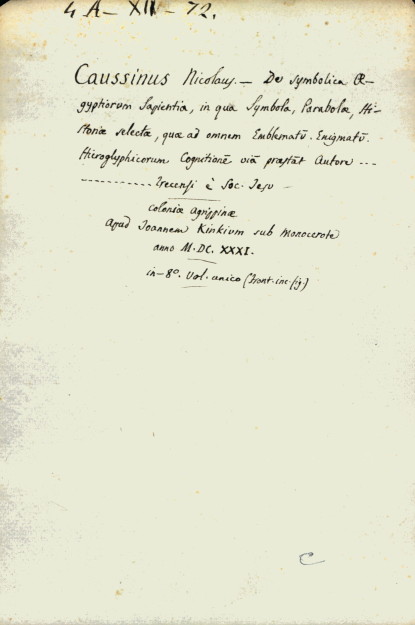 4 A - XII - 72.
Caussinus Nicolaus. — De symbolica Æ-
gyptiorum Sapientia, in qua Symbola, Parabolæ, Hi-
storiæ selectæ, quæ ad omnem Emblematū. Enigmatū.
Hieroglyphicorum Cognitionē viā præstat Autore ---
---------- Trecensi è Soc. Jesu —
coloniæ Agrippinæ
Apud Joannem Kinkium sub Monocerote
anno M. DC. XXXI.
in-8°. Vol. unico (Front. inc. fig.)
C